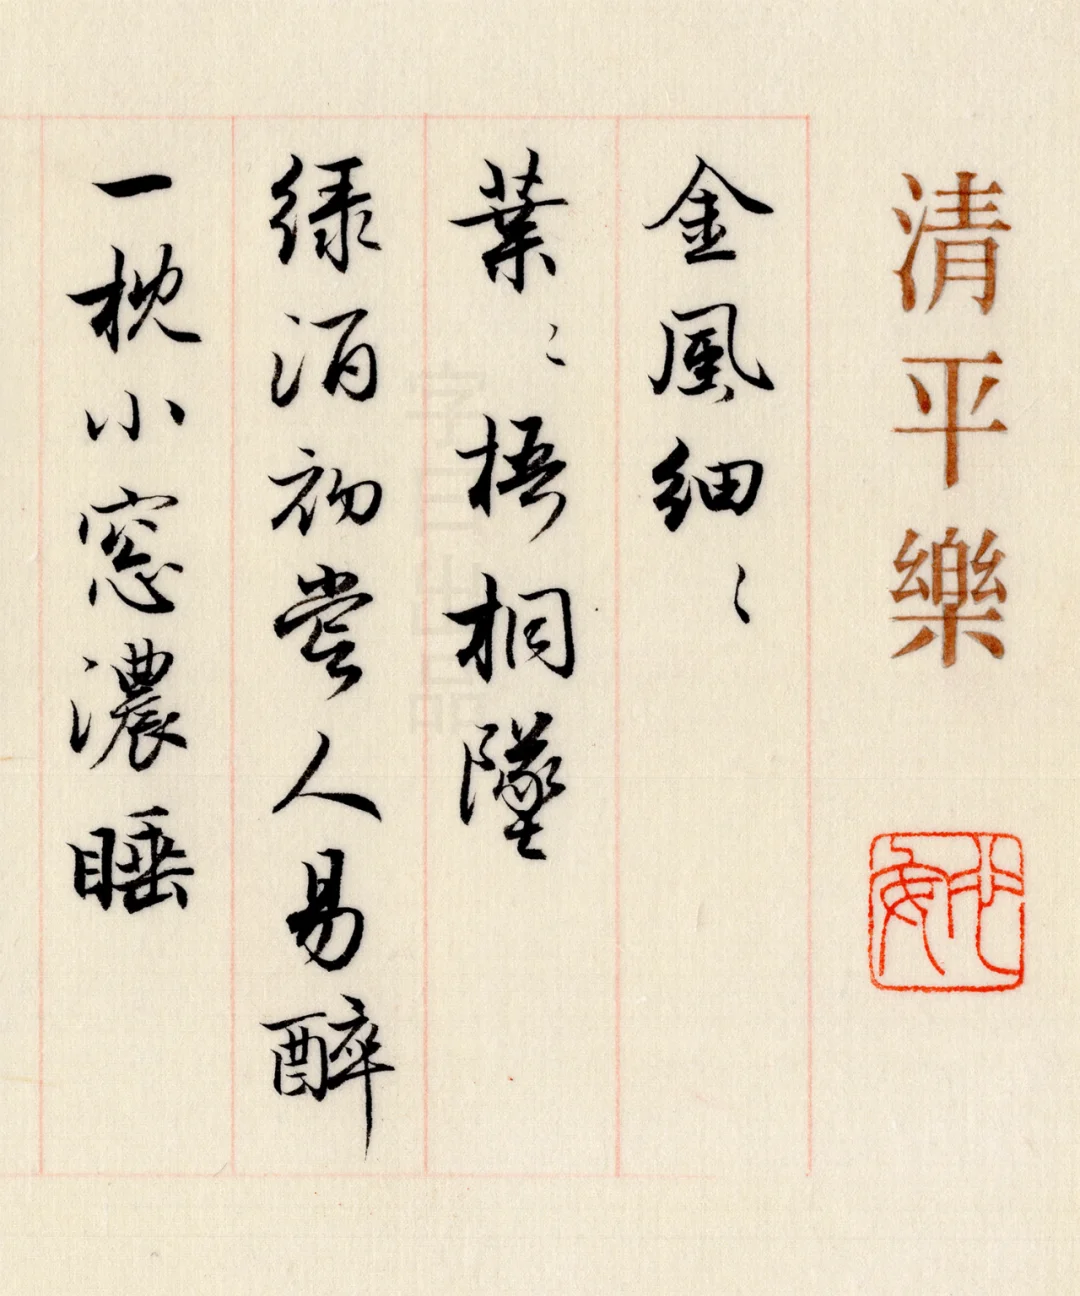 清平樂
金風細〻
葉〻梧桐墜
緑酒初嘗人易醉
一枕小窓濃睡
字曰出品